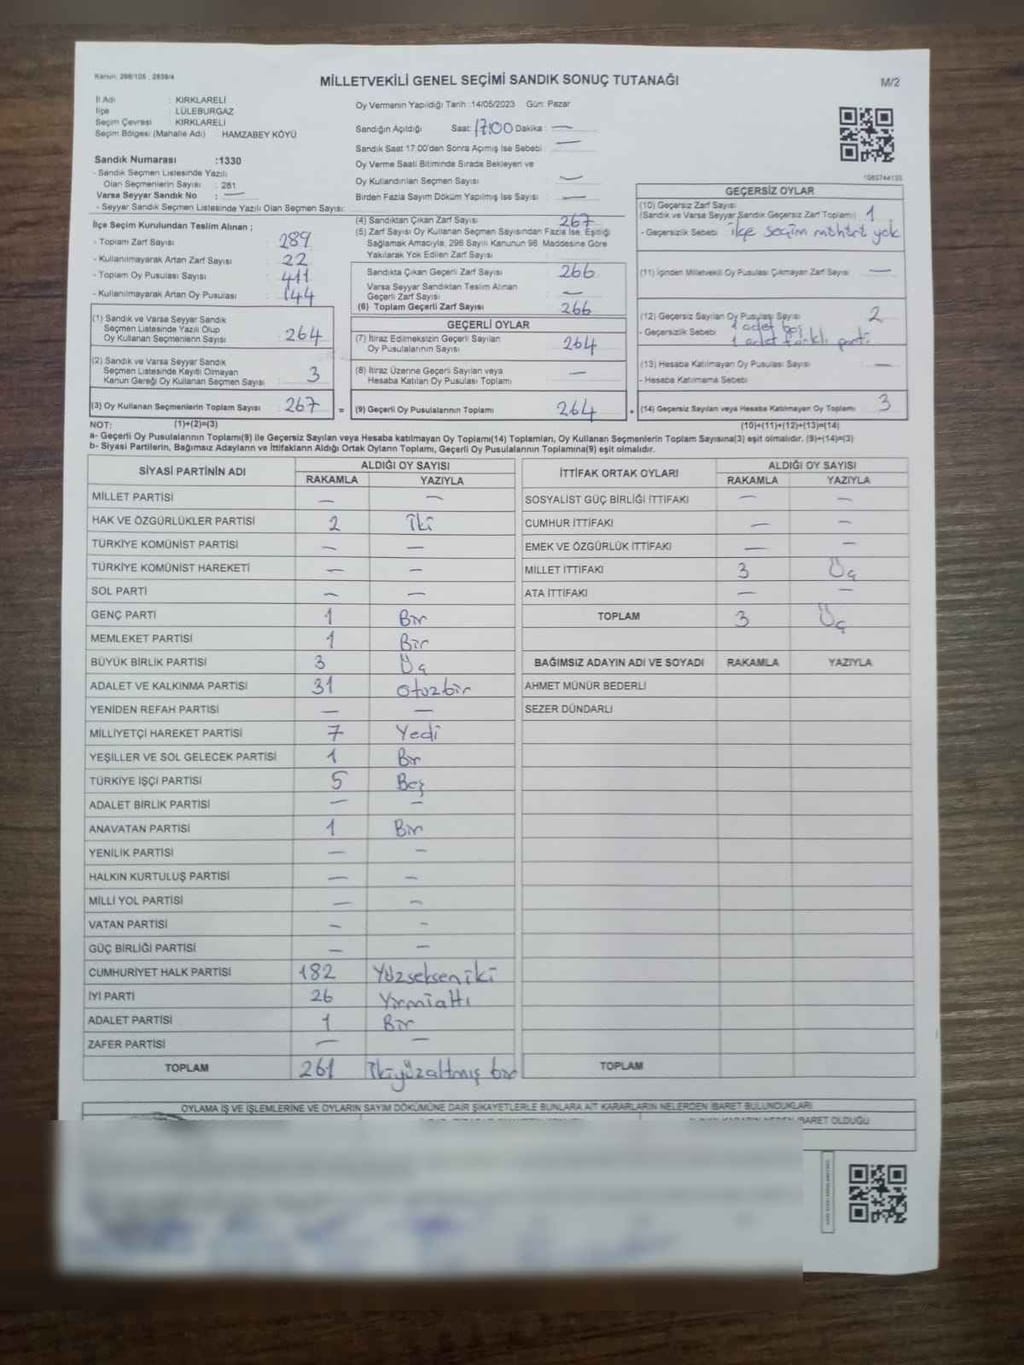 Kanun: 298/105 , 2839/4
MİLLETVEKİLİ GENEL SEÇİMİ SANDIK SONUÇ TUTANAĞI
M/2
İl Adı : KIRKLARELİ
İlçe : LÜLEBURGAZ
Seçim Çevresi : KIRKLARELİ
Seçim Bölgesi (Mahalle Adı) HAMZABEY KÖYÜ
Oy Vermenin Yapıldığı Tarih :14/05/2023 Gün: Pazar
Sandığın Açıldığı Saat: 17:00 Dakika : —
Sandık Saat 17.00'den Sonra Açılmış İse Sebebi : —
Oy Verme Saati Bitiminde Sırada Bekleyen ve
Oy Kullandırılan Seçmen Sayısı : —
Birden Fazla Sayım Döküm Yapılmış İse Sayısı : —
Sandık Numarası :1330
- Sandık Seçmen Listesinde Yazılı
Olan Seçmenlerin Sayısı : 281
Varsa Seyyar Sandık No : —
- Seyyar Sandık Seçmen Listesinde Yazılı Olan Seçmen Sayısı:
İlçe Seçim Kurulundan Teslim Alınan ;
- Toplam Zarf Sayısı : 289
- Kullanılmayarak Artan Zarf Sayısı : 22
- Toplam Oy Pusulası Sayısı : 411
- Kullanılmayarak Artan Oy Pusulası : 144
(1) Sandık ve Varsa Seyyar Sandık
Seçmen Listesinde Yazılı Olup
Oy Kullanan Seçmenlerin Sayısı : 264
(2) Sandık ve Varsa Seyyar Sandık
Seçmen Listesinde Kayıtlı Olmayan
Kanun Gereği Oy Kullanan Seçmen Sayısı : 3
(3) Oy Kullanan Seçmenlerin Toplam Sayısı : 267
(1)+(2)=(3)
(4) Sandıktan Çıkan Zarf Sayısı : 267
(5) Zarf Sayısı Oy Kullanan Seçmen Sayısından Fazla İse, Eşitliği
Sağlamak Amacıyla, 298 Sayılı Kanunun 98. Maddesine Göre
Yakılarak Yok Edilen Zarf Sayısı :
Sandıkta Çıkan Geçerli Zarf Sayısı : 266
Varsa Seyyar Sandıktan Teslim Alınan
Geçerli Zarf Sayısı : —
(6) Toplam Geçerli Zarf Sayısı : 266
GEÇERLİ OYLAR
(7) İtiraz Edilmeksizin Geçerli Sayılan
Oy Pusulalarının Sayısı : 264
(8) İtiraz Üzerine Geçerli Sayılan veya
Hesaba Katılan Oy Pusulası Toplamı : —
= (9) Geçerli Oy Pusulalarının Toplamı : 264
GEÇERSİZ OYLAR
(10) Geçersiz Zarf Sayısı
(Sandık ve Varsa Seyyar Sandık Geçersiz Zarf Toplamı) : 1
- Geçersizlik Sebebi : ilçe seçim mührü yok
(11) İçinden Milletvekili Oy Pusulası Çıkmayan Zarf Sayısı : —
(12) Geçersiz Sayılan Oy Pusulası Sayısı : 2
- Geçersizlik Sebebi : 1 adet boş
1 adet farklı parti
(13) Hesaba Katılmayan Oy Pusulası Sayısı : —
- Hesaba Katılmama Sebebi :
+ (14) Geçersiz Sayılan veya Hesaba Katılmayan Oy Toplamı : 3
(10)+(11)+(12)+(13)=(14)
NOT:
a- Geçerli Oy Pusulalarının Toplamı(9) ile Geçersiz Sayılan veya Hesaba katılmayan Oy Toplamı(14) Toplamları, Oy Kullanan Seçmenlerin Toplam Sayısına(3) eşit olmalıdır. (9)+(14)=(3)
b- Siyasi Partilerin, Bağımsız Adayların ve İttifakların Aldığı Ortak Oyların Toplamı, Geçerli Oy Pusulalarının Toplamına(9) eşit olmalıdır.
SİYASİ PARTİNİN ADI ALDIĞI OY SAYISI
RAKAMLA YAZIYLA
MİLLET PARTİSİ — —
HAK VE ÖZGÜRLÜKLER PARTİSİ 2 İki
TÜRKİYE KOMÜNİST PARTİSİ — —
TÜRKİYE KOMÜNİST HAREKETİ — —
SOL PARTİ — —
GENÇ PARTİ 1 Bir
MEMLEKET PARTİSİ 1 Bir
BÜYÜK BİRLİK PARTİSİ 3 Üç
ADALET VE KALKINMA PARTİSİ 31 otuzbir
YENİDEN REFAH PARTİSİ — —
MİLLİYETÇİ HAREKET PARTİSİ 7 Yedi
YEŞİLLER VE SOL GELECEK PARTİSİ 1 Bir
TÜRKİYE İŞÇİ PARTİSİ 5 Beş
ADALET BİRLİK PARTİSİ — —
ANAVATAN PARTİSİ 1 Bir
YENİLİK PARTİSİ — —
HALKIN KURTULUŞ PARTİSİ — —
MİLLİ YOL PARTİSİ — —
VATAN PARTİSİ — —
GÜÇ BİRLİĞİ PARTİSİ — —
CUMHURİYET HALK PARTİSİ 182 Yüzsekseniki
İYİ PARTİ 26 Yirmialtı
ADALET PARTİSİ 1 Bir
ZAFER PARTİSİ — —
TOPLAM 261 İkiyüzaltmış bir
İTTİFAK ORTAK OYLARI ALDIĞI OY SAYISI
RAKAMLA YAZIYLA
SOSYALİST GÜÇ BİRLİĞİ İTTİFAKI — —
CUMHUR İTTİFAKI — —
EMEK VE ÖZGÜRLÜK İTTİFAKI — —
MİLLET İTTİFAKI 3 Üç
ATA İTTİFAKI — —
TOPLAM 3 Üç
BAĞIMSIZ ADAYIN ADI VE SOYADI RAKAMLA YAZIYLA
AHMET MÜNÜR BEDERLİ
SEZER DÜNDARLI
TOPLAM
OYLAMA İŞ VE İŞLEMLERİNE VE OYLARIN SAYIM DÖKÜMÜNE DAİR ŞİKAYETLERLE BUNLARA AİT KARARLARIN NELERDEN İBARET BULUNDUKLARI